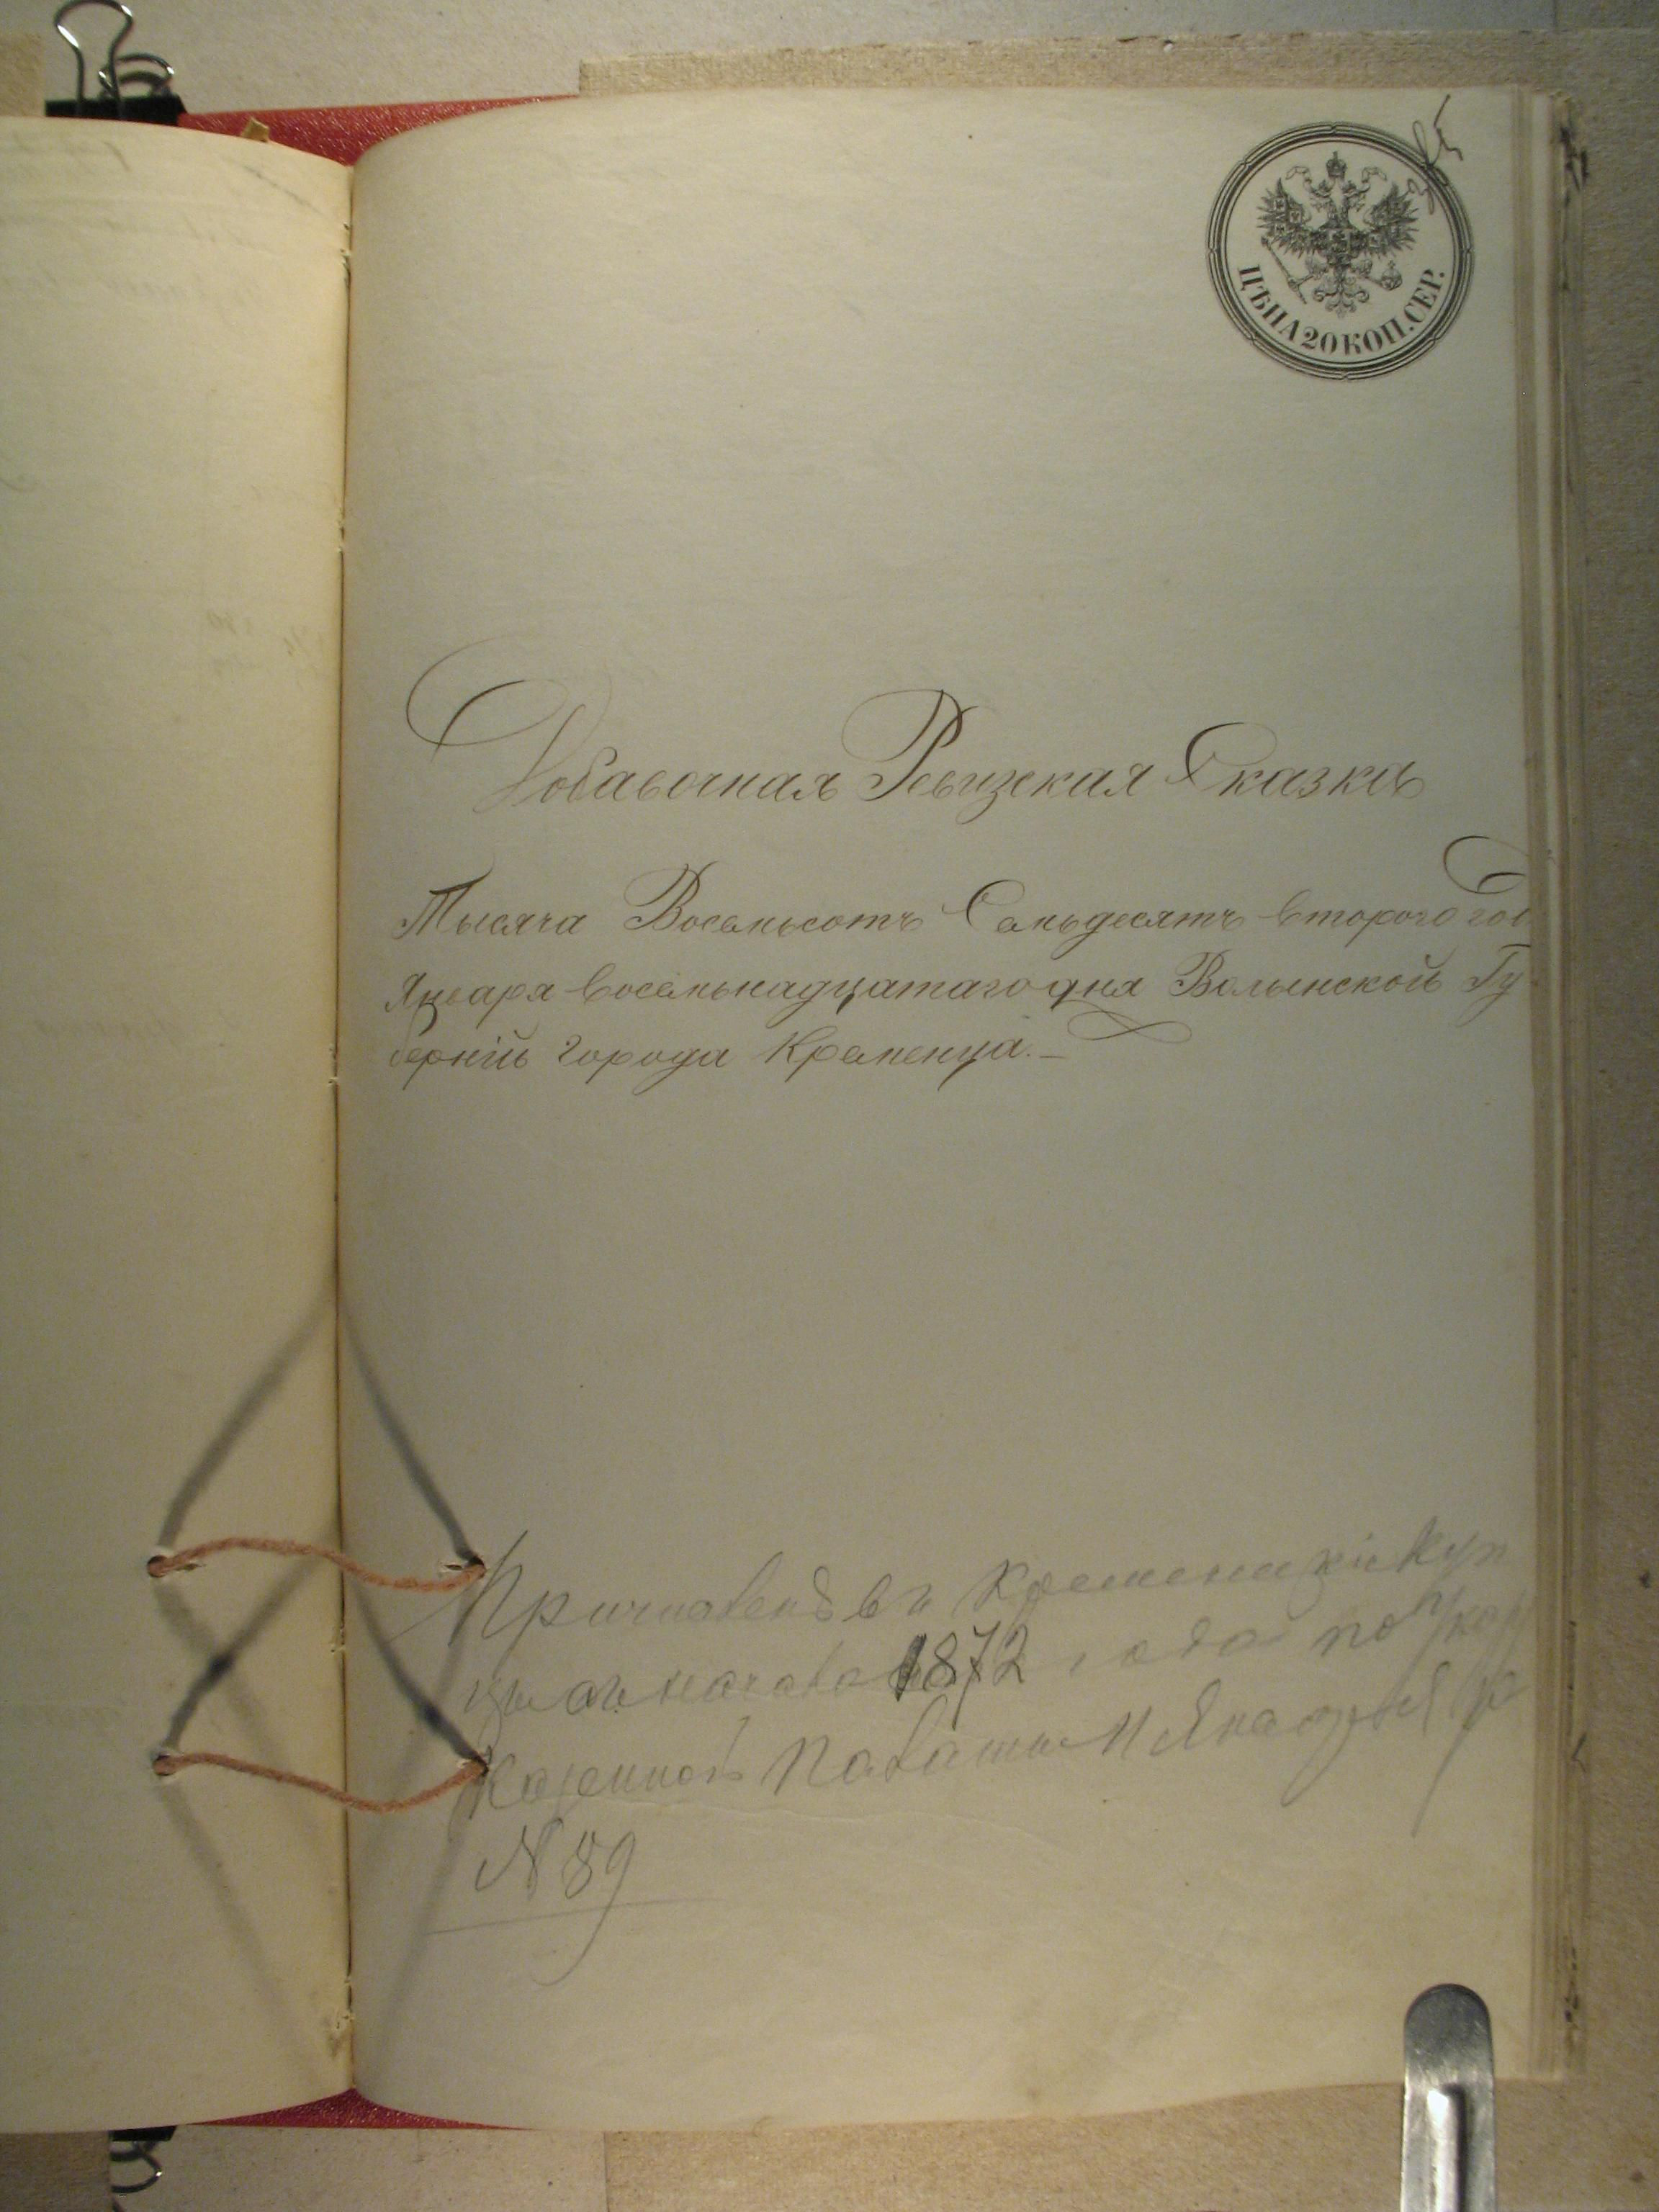 ЦѢНА 20 КОП. СЕР.
Добавочная Ревизская Сказка
Тысяча Восемьсотъ Семьдесятъ второго го
Января восемьнадцатаго дня Волынской Гу
берніи города Кременца.—
Причисленъ въ Кременецкіе Куп
цы съ начала 1872 года по Указу
Казенной Палаты Января
N 89